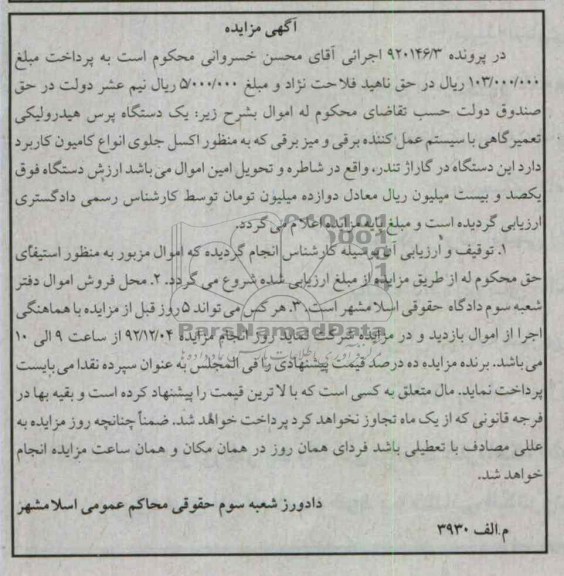 آگهی مزایده
در پرونده ۹۲۰۱۴۶/۳ اجرائی آقای محسن خسروانی محکوم است به پرداخت مبلغ
۱۰۳/۰۰۰/۰۰۰ ریال در حق ناهید فلاحت نژاد و مبلغ ۵/۰۰۰/۰۰۰ ریال نیم عشر دولت در حق
صندوق دولت حسب تقاضای محکوم له اموال بشرح زیر: یک دستگاه پرس هیدرولیکی
تعمیرگاهی با سیستم عمل کننده برقی و میز برقی که به منظور اکسل جلوی انواع کامیون کاربرد
دارد این دستگاه در گاراژ تندر، واقع در شاطره و تحویل امین اموال می باشد ارزش دستگاه فوق
یکصد و بیست میلیون ریال معادل دوازده میلیون تومان توسط کارشناس رسمی دادگستری
ارزیابی گردیده است و مبلغ پایه مزایده اعلام می گردد.
۱. توقیف و ارزیابی آن بوسیله کارشناس انجام گردیده که اموال مزبور به منظور استیفای
حق محکوم له از طریق مزایده از مبلغ ارزیابی شده شروع می گردد. ۲. محل فروش اموال دفتر
شعبه سوم دادگاه حقوقی اسلامشهر است. ۳. هر کس می تواند ۵ روز قبل از مزایده با هماهنگی
اجرا از اموال بازدید و در مزایده شرکت نماید روز انجام مزایده ۹۲/۱۲/۰۴ از ساعت ۹ الی ۱۰
ParsNamadData
می باشد. برنده مزایده ده درصد قیمت پیشنهادی را فی المجلس به عنوان سپرده نقدا می بایست
پرداخت نماید. مال متعلق به کسی است که بالاترین قیمت را پیشنهاد کرده است و بقیه بها در
فرجه قانونی که از یک ماه تجاوز نخواهد کرد پرداخت خواهد شد. ضمناً چنانچه روز مزایده به
عللی مصادف با تعطیلی باشد فردای همان روز در همان مکان و همان ساعت مزایده انجام
خواهد شد.
دادورز شعبه سوم حقوقی محاکم عمومی اسلامشهر
م.الف ۳۹۳۰